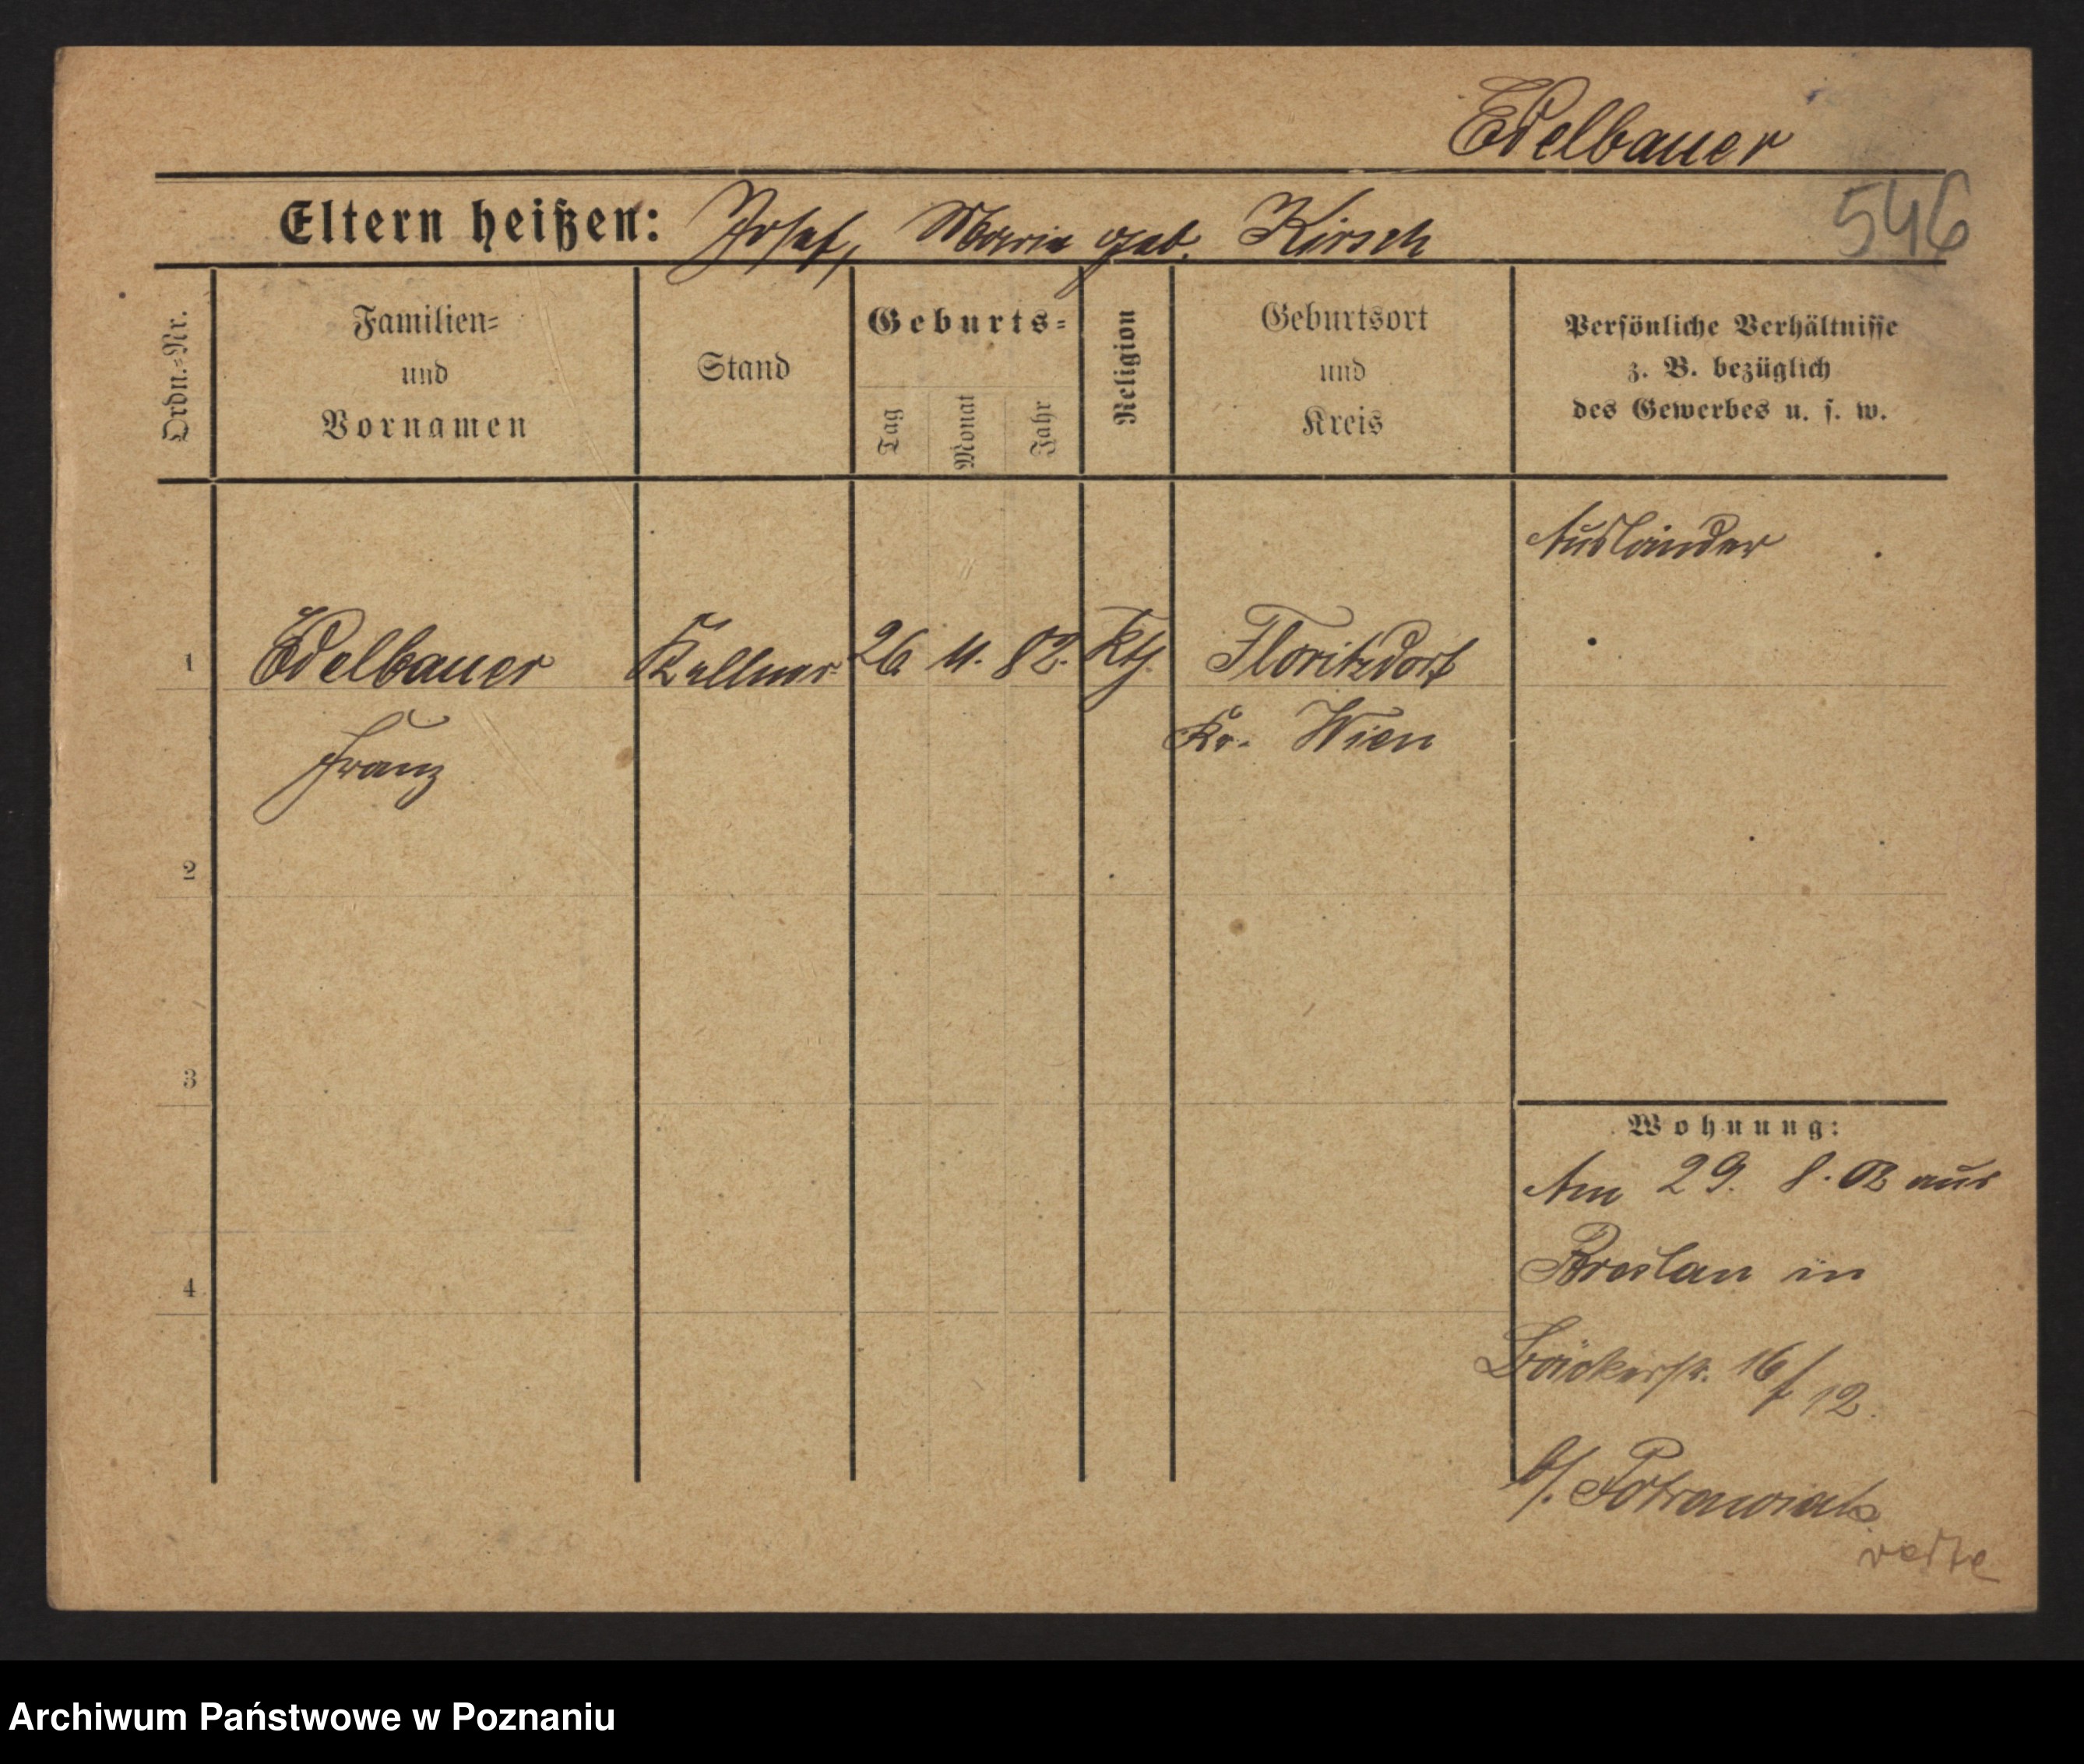 Edelbauer
546
Eltern heißen: Josef, Maria geb. Kirsch
Ordn.=Nr.
Familien=
und
Vornamen
Stand
Geburts=
Tag
Monat
Jahr
Religion
Geburtsort
und
Kreis
Persönliche Verhältnisse
z. B. bezüglich
des Gewerbes u. s. w.
Ausländer
1 Edelbauer Kellner 26 11. 82. Kth. Floritzdorf
Franz Kr. Wien
2
3
4
Wohnung:
Am 29. 8. 02 aus
Breslau in
Bäckerstr. 16/ 12.
b/. Potrawiak